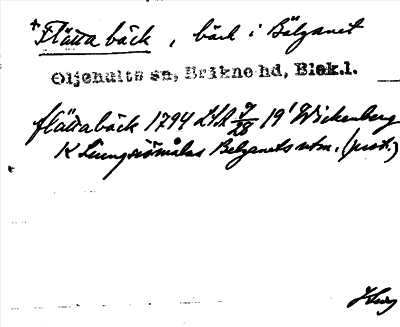 *Flätta bäck, bäck i Bälganet
Öljehults sn, Brikne hd, Blek.l.
flättabäck 1794 LSA 19 Wickenberg
K Ljungsjömålas Belganets utm. (prot.)